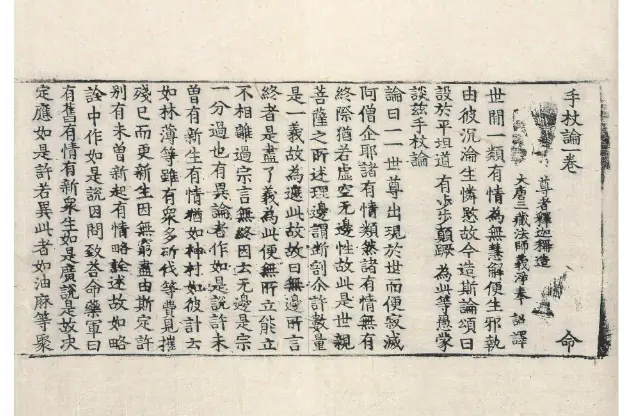 手杖論卷
尊者釋迦稱造
大唐三藏法師義淨奉 詔譯
命
世間一類有情為無慧解便生邪執
由彼沉淪生憐愍故今造斯論頌曰
設於平坦道 有步步顛蹶 為此等愚蒙
談茲手杖論
論曰一一世尊出現於世而便寂滅
阿僧企耶諸有情類然諸有情無有
終際猶若虛空无邊性故此是世親
菩薩之所述理邊謂斷割分許數量
是一義故為邊此故故曰無邊所言
終者是盡了義為此便無所立能立
不相離過宗言無終因云无邊是宗
一分過也有異論者作如是說許未
曾有新生有情猶如神村如彼計云
如林薄等雖有眾多斫伐等費見摧
殘已而更新生因無窮盡由斯定許
別有未曾新起有情略詮述故如略
詮中作如是說因問致荅命藥軍曰
有舊有情有新眾生如是廣說是故決
定應如是許若異此者如油麻等聚